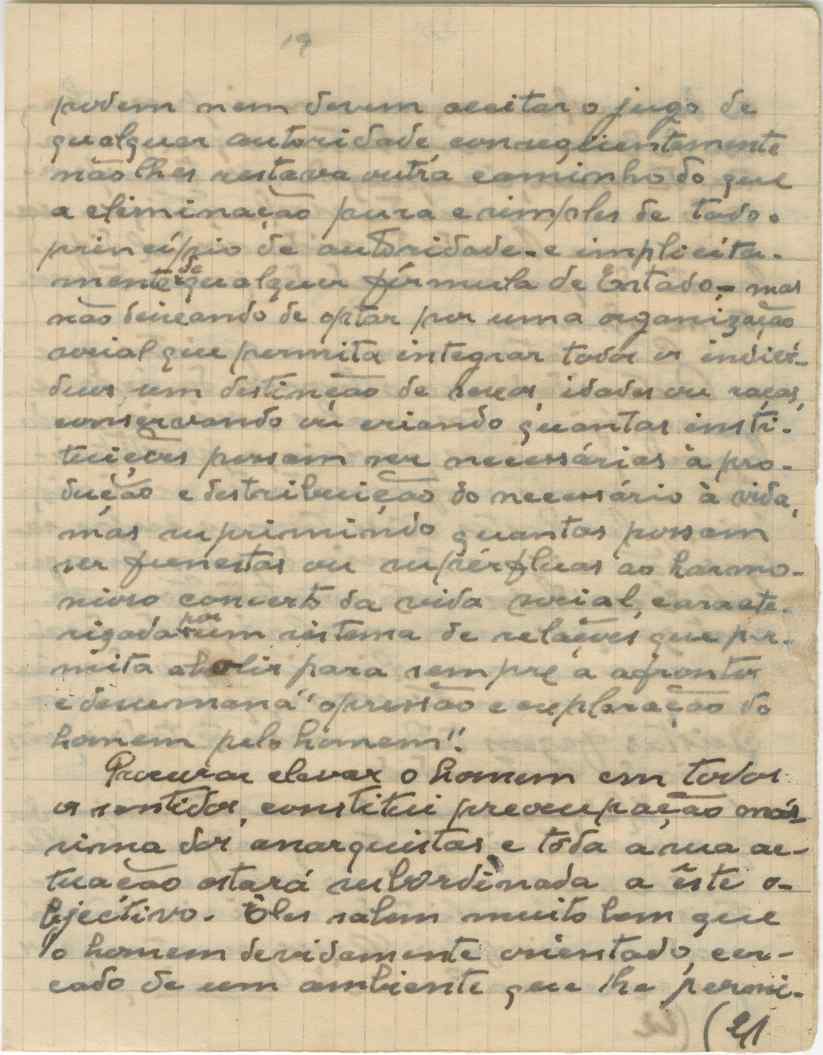 19
podem nem devem aceitar o jugo de
qualquer autoridade conseqüentemente
não lhes restava outra caminho do que
a eliminação pura e simples de todo o
princípio de autoridade - e implícita-
mente de qualquer fórmula de Estado - mas
não deixando de optar por uma organização
social que permita integrar todos os indiví-
duos, sem destinção de sexos, idades ou raças,
conservando ou criando quantas insti-
tuições possam ser necessárias à pro-
dução e destribuição do necessário à vida,
mas suprimindo quantas possam
ser funestas ou supérfluas ao harmo-
nioso concerto da vida social, caracte-
rizada por um sistema de relações que per-
mita abolir para sempre a afrontosa
e desumana "opressão e exploração do
homem pelo homem".
Procurar elevar o homem em todos
os sentidos, constitui preocupação má-
xima dos anarquistas e tôda a sua ac-
tuação estará subordinada a êste o-
bjectivo. Êles sabem muito bem que
o homem devidamente orientado, cer-
cado de um ambiente que lhe permi-
(21